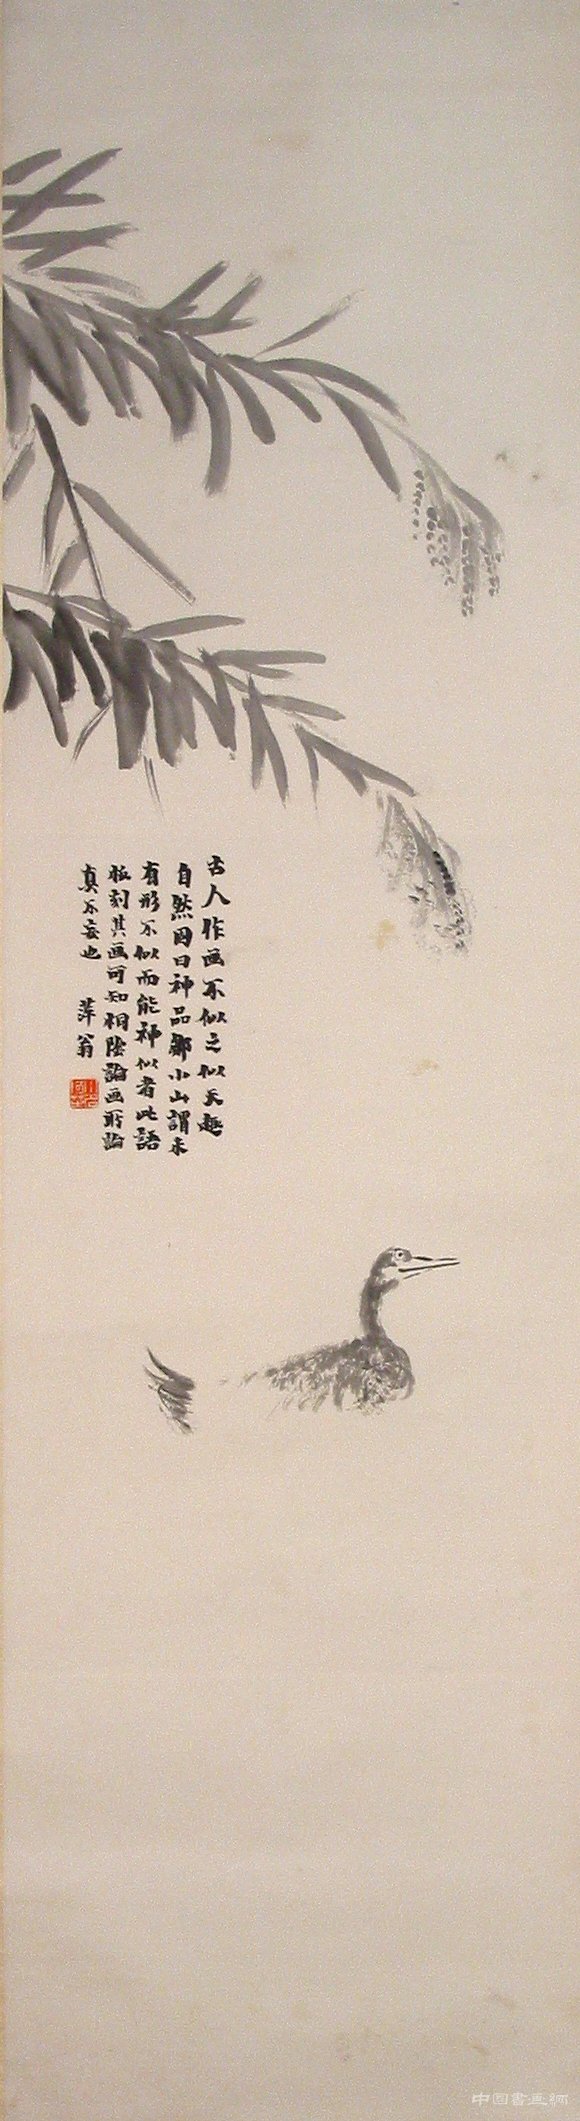 古人作画不似之似天趣
自然因曰神品鄒小山謂未
有形不似而能神似者此語
刻其画可知桐陰論画所論
真不妄也 萍翁
中国書画網